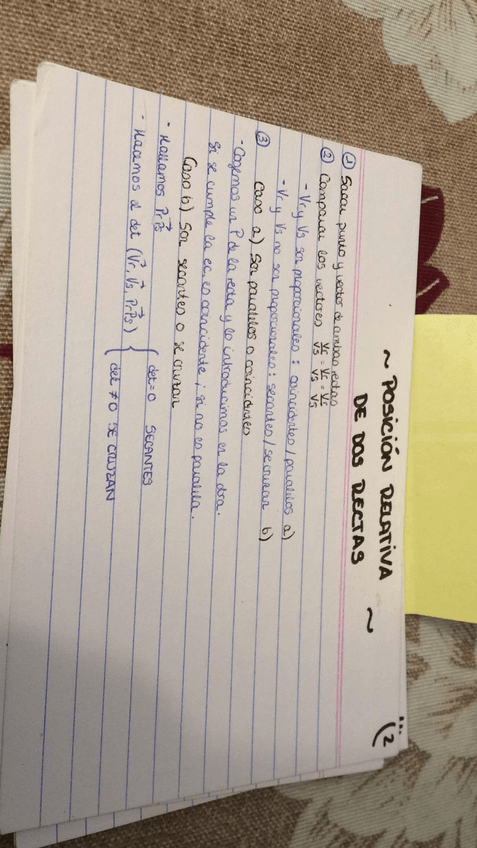 ~ POSICIÓN RELATIVA
DE DOS RECTAS ~
(2
① Sacar punto y vector de ambas rectas
② Comparar los vectores Vr/Vs = Vr/Vs = Vr/Vs
- Vr y Vs son proporcionales: coincidentes / paralelos a)
- Vr y Vs no son proporcionales: secantes / se cruzan b)
③ Caso a) Son paralelos o coincidentes
- Cogemos un P de la recta y lo introducimos en la otra.
Si se cumple la ec, es coincidente; si no es paralela.
Caso b) Son secantes o se cruzan
- Hallamos PrPs
- Hacemos el det (Vr, Vs, PrPs) { det=0 SECANTES
det ≠ 0 SE CRUZAN